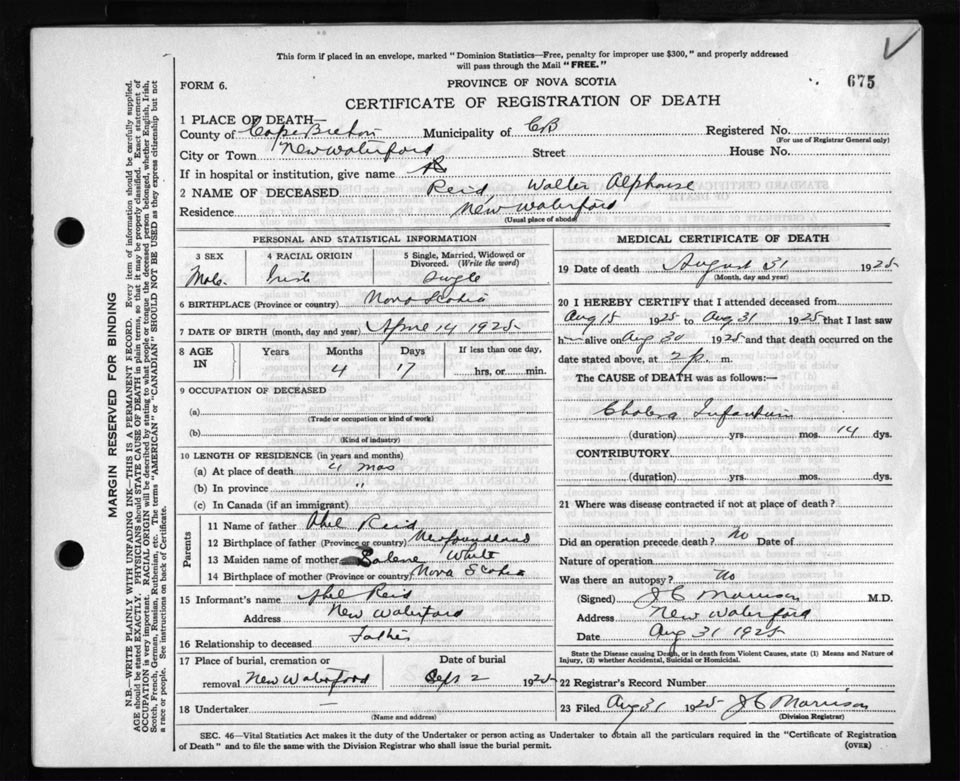 This form if placed in an envelope, marked "Dominion Statistics—Free, penalty for improper use $300," and properly addressed
will pass through the Mail "FREE."
FORM 6.
PROVINCE OF NOVA SCOTIA
675
CERTIFICATE OF REGISTRATION OF DEATH
1 PLACE OF DEATH—
County of Cape Breton Municipality of CB Registered No.
(For use of Registrar General only)
City or Town New Waterford Street House No.
If in hospital or institution, give name
2 NAME OF DECEASED Reid Walter Alphonse
Residence New Waterford
(Usual place of abode)
PERSONAL AND STATISTICAL INFORMATION
3 SEX 4 RACIAL ORIGIN 5 Single, Married, Widowed or
Divorced. (Write the word)
Male Irish Single
6 BIRTHPLACE (Province or country) Nova Scotia
7 DATE OF BIRTH (month, day and year) April 14 1925
8 AGE IN Years Months Days If less than one day,
4 17 hrs, or min.
9 OCCUPATION OF DECEASED
(a)
(Trade or occupation or kind of work)
(b)
(Kind of industry)
10 LENGTH OF RESIDENCE (in years and months)
(a) At place of death 4 mos
(b) In province "
(c) In Canada (if immigrant)
Parents
11 Name of father Phil Reid
12 Birthplace of father (Province or country) Newfoundland
13 Maiden name of mother White
14 Birthplace of mother (Province or country) Nova Scotia
15 Informant's name Phil Reid
Address New Waterford
16 Relationship to deceased Father
17 Place of burial, cremation or Date of burial
removal New Waterford Sept 2 1925
18 Undertaker —
(Name and address)
MEDICAL CERTIFICATE OF DEATH
19 Date of death August 31 1925
(Month, day and year)
20 I HEREBY CERTIFY that I attended deceased from
Aug 15 1925 to Aug 31 1925 that I last saw
h alive on Aug 30 1925 and that death occurred on the
date stated above, at 2 p. m.
The CAUSE of DEATH was as follows:—
Cholera Infantum
(duration) yrs. mos. 14 dys.
CONTRIBUTORY
(duration) yrs. mos. dys.
21 Where was disease contracted if not at place of death?
Did an operation precede death? No Date of
Nature of operation
Was there an autopsy? No
(Signed) J C Morrison M.D.
Address New Waterford
Date Aug 31 1925
State the Disease causing Death, or in death from Violent Causes, state (1) Means and Nature of
Injury, (2) whether Accidental, Suicidal or Homicidal.
22 Registrar's Record Number
23 Filed Aug 31 1925 J C Morrison
(Division Registrar)
SEC. 46—Vital Statistics Act makes it the duty of the Undertaker or person acting as Undertaker to obtain all the particulars required in the "Certificate of Registration
of Death" and to file the same with the Division Registrar who shall issue the burial permit.
(OVER)
MARGIN RESERVED FOR BINDING
N.B.—WRITE PLAINLY WITH UNFADING INK—THIS IS A PERMANENT RECORD. Every item of information should be carefully supplied.
AGE should be stated EXACTLY. PHYSICIANS should STATE CAUSE OF DEATH in plain terms, so that it may be properly classified. Exact statement of
OCCUPATION is very important. RACIAL ORIGIN will be described by stating to what people or tongue the deceased person belonged, whether English, Irish,
Scotch, French, German, Russian, Ruthenian, etc. The terms "AMERICAN" or "CANADIAN" SHOULD NOT BE USED as they express citizenship but not
a race or people. See instructions on back of Certificate.